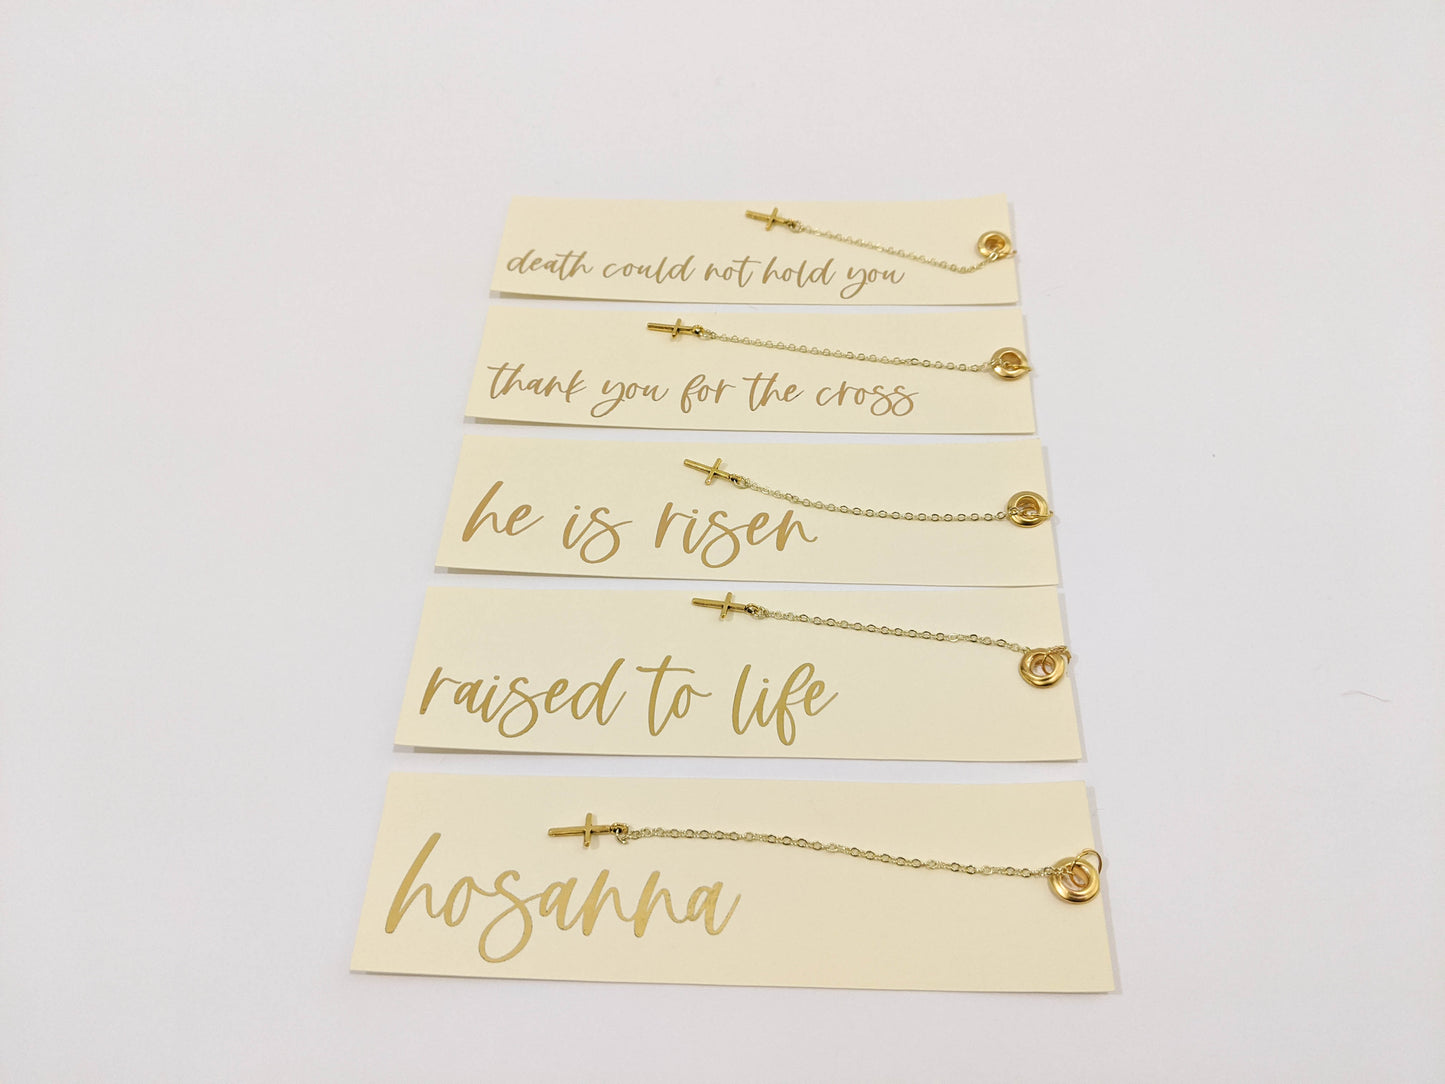 death could not hold you
thank you for the cross
he is risen
raised to life
hosanna